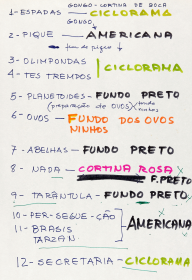 GONGO - CORTINA DE BOCA
1- ESPADAS CICLORAMA
GONGO
2- PIQUE AMERICANA
fim do pique
3- OLIMPONDAS CICLORAMA
4- TES TREMPOS
5- PLANETOIDES - FUNDO PRETO
(preparação de ovos)
6- OVOS - FUNDO DOS OVOS
NINHOS
7- ABELHAS - FUNDO PRETO
8- NADA - CORTINA ROSA
F. PRETO
9- TARÂNTULA - FUNDO PRETO
10- PER-SEGUE-ÇÃO
11- BRABIS AMERICANA
TARZAN
12- SECRETARIA - CICLORAMA